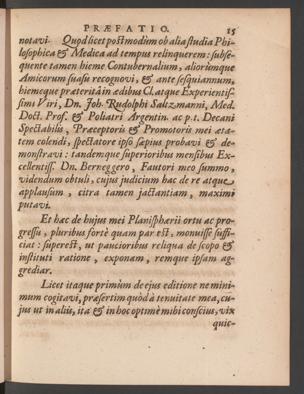 PRÆFATIO. 15
notavi. Quod licet postmodùm ob alia studia Phi-
losophica & Medica ad tempus relinquerem: subse-
quente tamen hieme Contubernalium, aliorúmque
Amicorum suasu recognovi, & ante sesquiannum,
hiemeque præteritâ in ædibus Cl. atque Experientis-
simi Viri, Dn. Joh. Rudolphi Saltzmanni, Med.
Doct. Prof. & Poliatri Argentin. ac p. t. Decani
Spectabilis, Præceptoris & Promotoris mei æta-
tem colendi, spectatore ipso sæpius probavi & de-
monstravi: tandemque superioribus mensibus Ex-
cellentiss. Dn. Berneggero, Fautori meo summo,
videndum obtuli, cujus judicium hac de re atque
applausum, citra tamen jactantiam, maximi
putavi.
Et hæc de hujus mei Planisphærii ortu ac pro-
gressu, pluribus fortè quam par est, monuisse suffi-
ciat: superest, ut paucioribus reliqua de scopo &
instituti ratione, exponam, remque ipsam ag-
grediar.
Licet itaque primùm de ejus editione ne mini-
mum cogitavi, præsertim quòd à tenuitate mea, cu-
jus ut in aliis, ita & in hoc optimè mihi conscius, vix
quic-